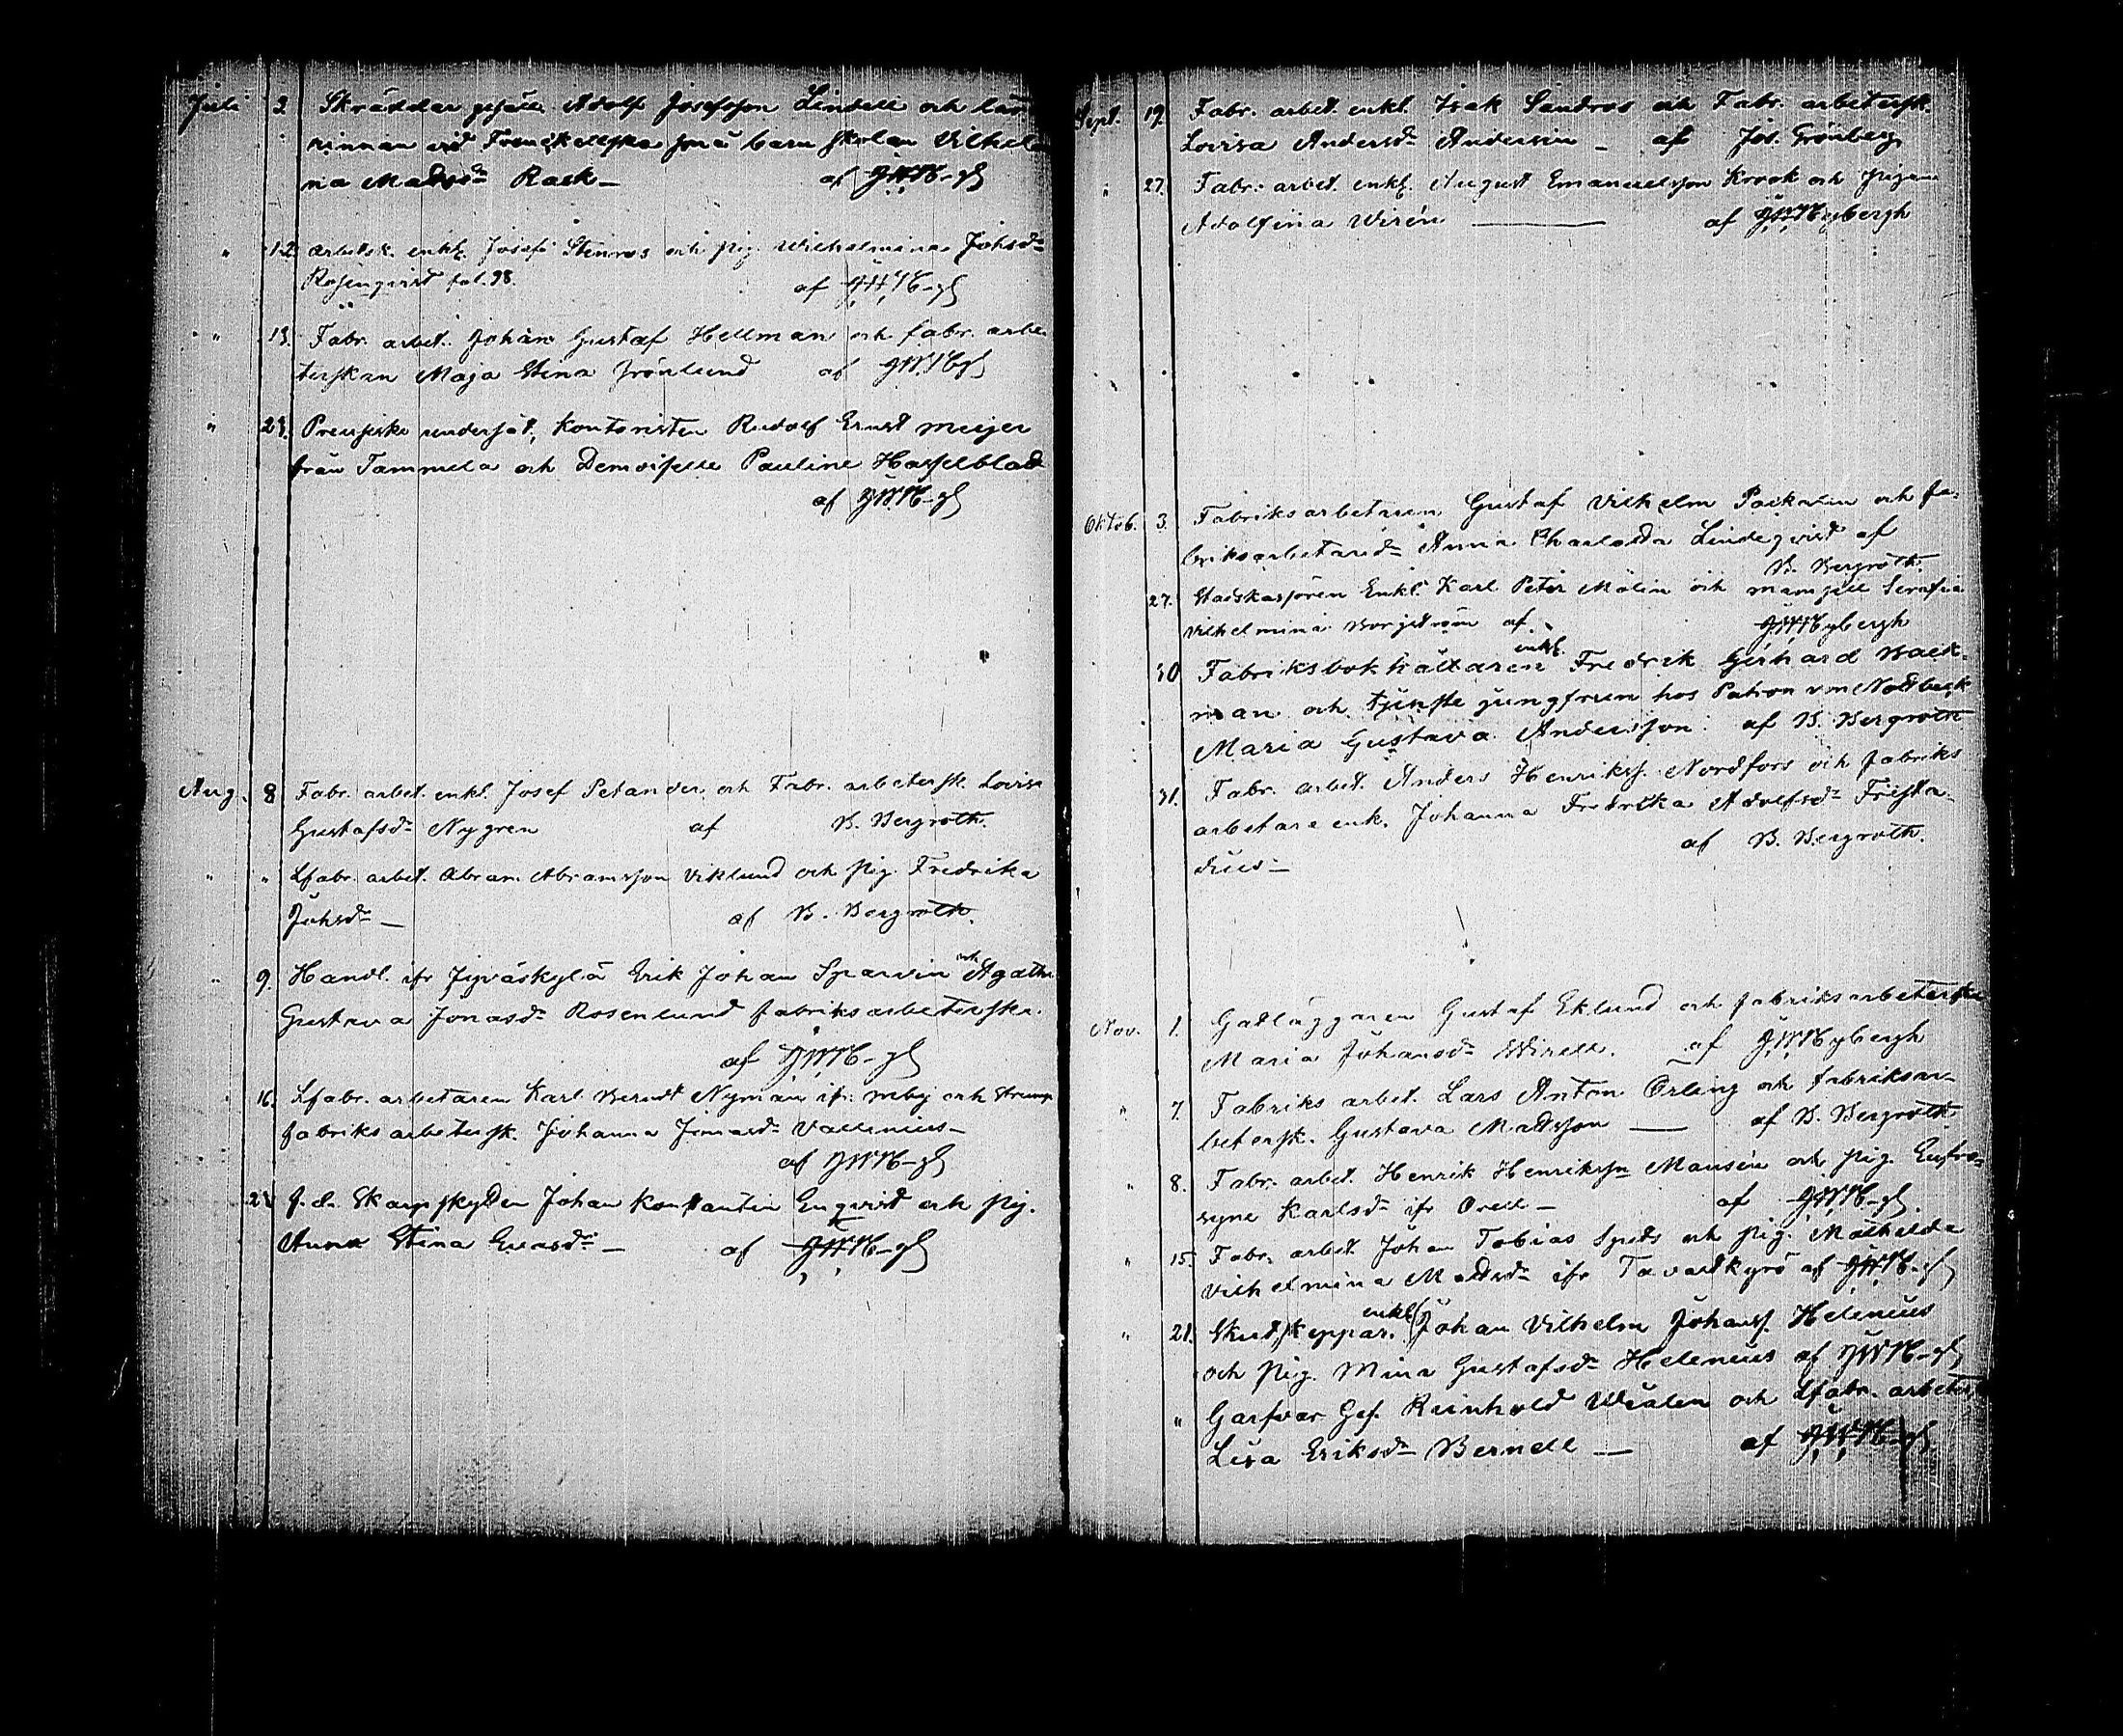 Juli 2 Skräddar gesäll Adolf Josefsson Lindell och lär
rinnan vid Frenckellska små barn skolan Vilhel
na Matsdr Rask - af
" 12 arbetsk. enkl. Josef Stenros och pig. Wilhelmina Johsdr
Rosenqvist fol. 98. af
" 13. Fabr. arbet. Johan Gustaf Hellman och fabr. arbe
terskan Maja Stina Grönlund af
" Preussiske undersåt. Kontoristen Rudolf Ernst Meijer
från Tammela och Demoiselle Pauline Hasselblad
af
Aug. 8 Fabr. arbet. enkl. Josef Petander och Fabr. arbetersk. Lovisa
Gustafsdr Nygren af B. Bergroth.
" " Lfabr. arbet. Abram Abramsson Viklund och pig. Fredrika
Johsdr - af B. Bergroth.
" 9. Handl. ifr Jyväskylä Erik Johan Sparvin och Agatha
Gustava Jonasdr Rosenlund fabriksarbeterska.
af
16. Lfabr. arbetaren Karl Berndt Nyman ifr. och
fabriks arbetersk. Johanna Vallenius -
af
f. d. Skarpskytten Johan Konstantin Enqvist och pig.
Anna Stina Evasdr - af
Sept. 19. Fabr. arbet. enkl. Isak Sandros och Fabr. arbetersk.
Lovisa Andersdr Andersin - af Jos. Grönberg
" 27. Fabr. arbet. enkl. August Emanuelsson Krook och pigan
Adolfina Wirén - af Nybergh
Oktob. 3. Fabriksarbetaren Gustaf Vilhelm och fa-
briksarbetaredr Anna Charlotta Lindeqvist af
B. Bergroth.
27. Stadskassören Enkl. Karl Peter Molin och mamsell Serafia
Vilhelmina Borgström af Nybergh
30 Fabriksbokhållaren enkl. Fredrik Gerhard Back-
man och tjenste jungfrun hos Patron von Nottbeck
Maria Gustava Andersson. af B. Bergroth
31. Fabr. arbet. Anders Henrikss. Nordfors och fabriks
arbetare enk. Johanna Fredrika Adolfsdr
af B. Bergroth.
Nov. 1. Gatläggaren Gustaf Eklund och fabriksarbeterska
Maria Johansdr Wirell. af Nybergh
" 7. Fabriks arbet. Lars Anton Örling och fabriksar-
betersk. Gustava Matsson - af B. Bergroth.
" 8. Fabr. arbet. Henrik Henriksson Mansén och pig. Eufro-
syne Karlsdr ifr Orell - af
" 15. Fabr. arbet. Johan Tobias Spets och pig. Mathilda
Vilhelmina Mattsdr ifr Tavastkyrö af
" 21. Skutskeppar. enkl. Johan Vilhelm Johanss. Helenius
och pig. Mina Gustafsdr Helenius af
" Garfvar Ges. Reinhold och Lfabr. arbeters
Lisa Eriksdr Bernell - af